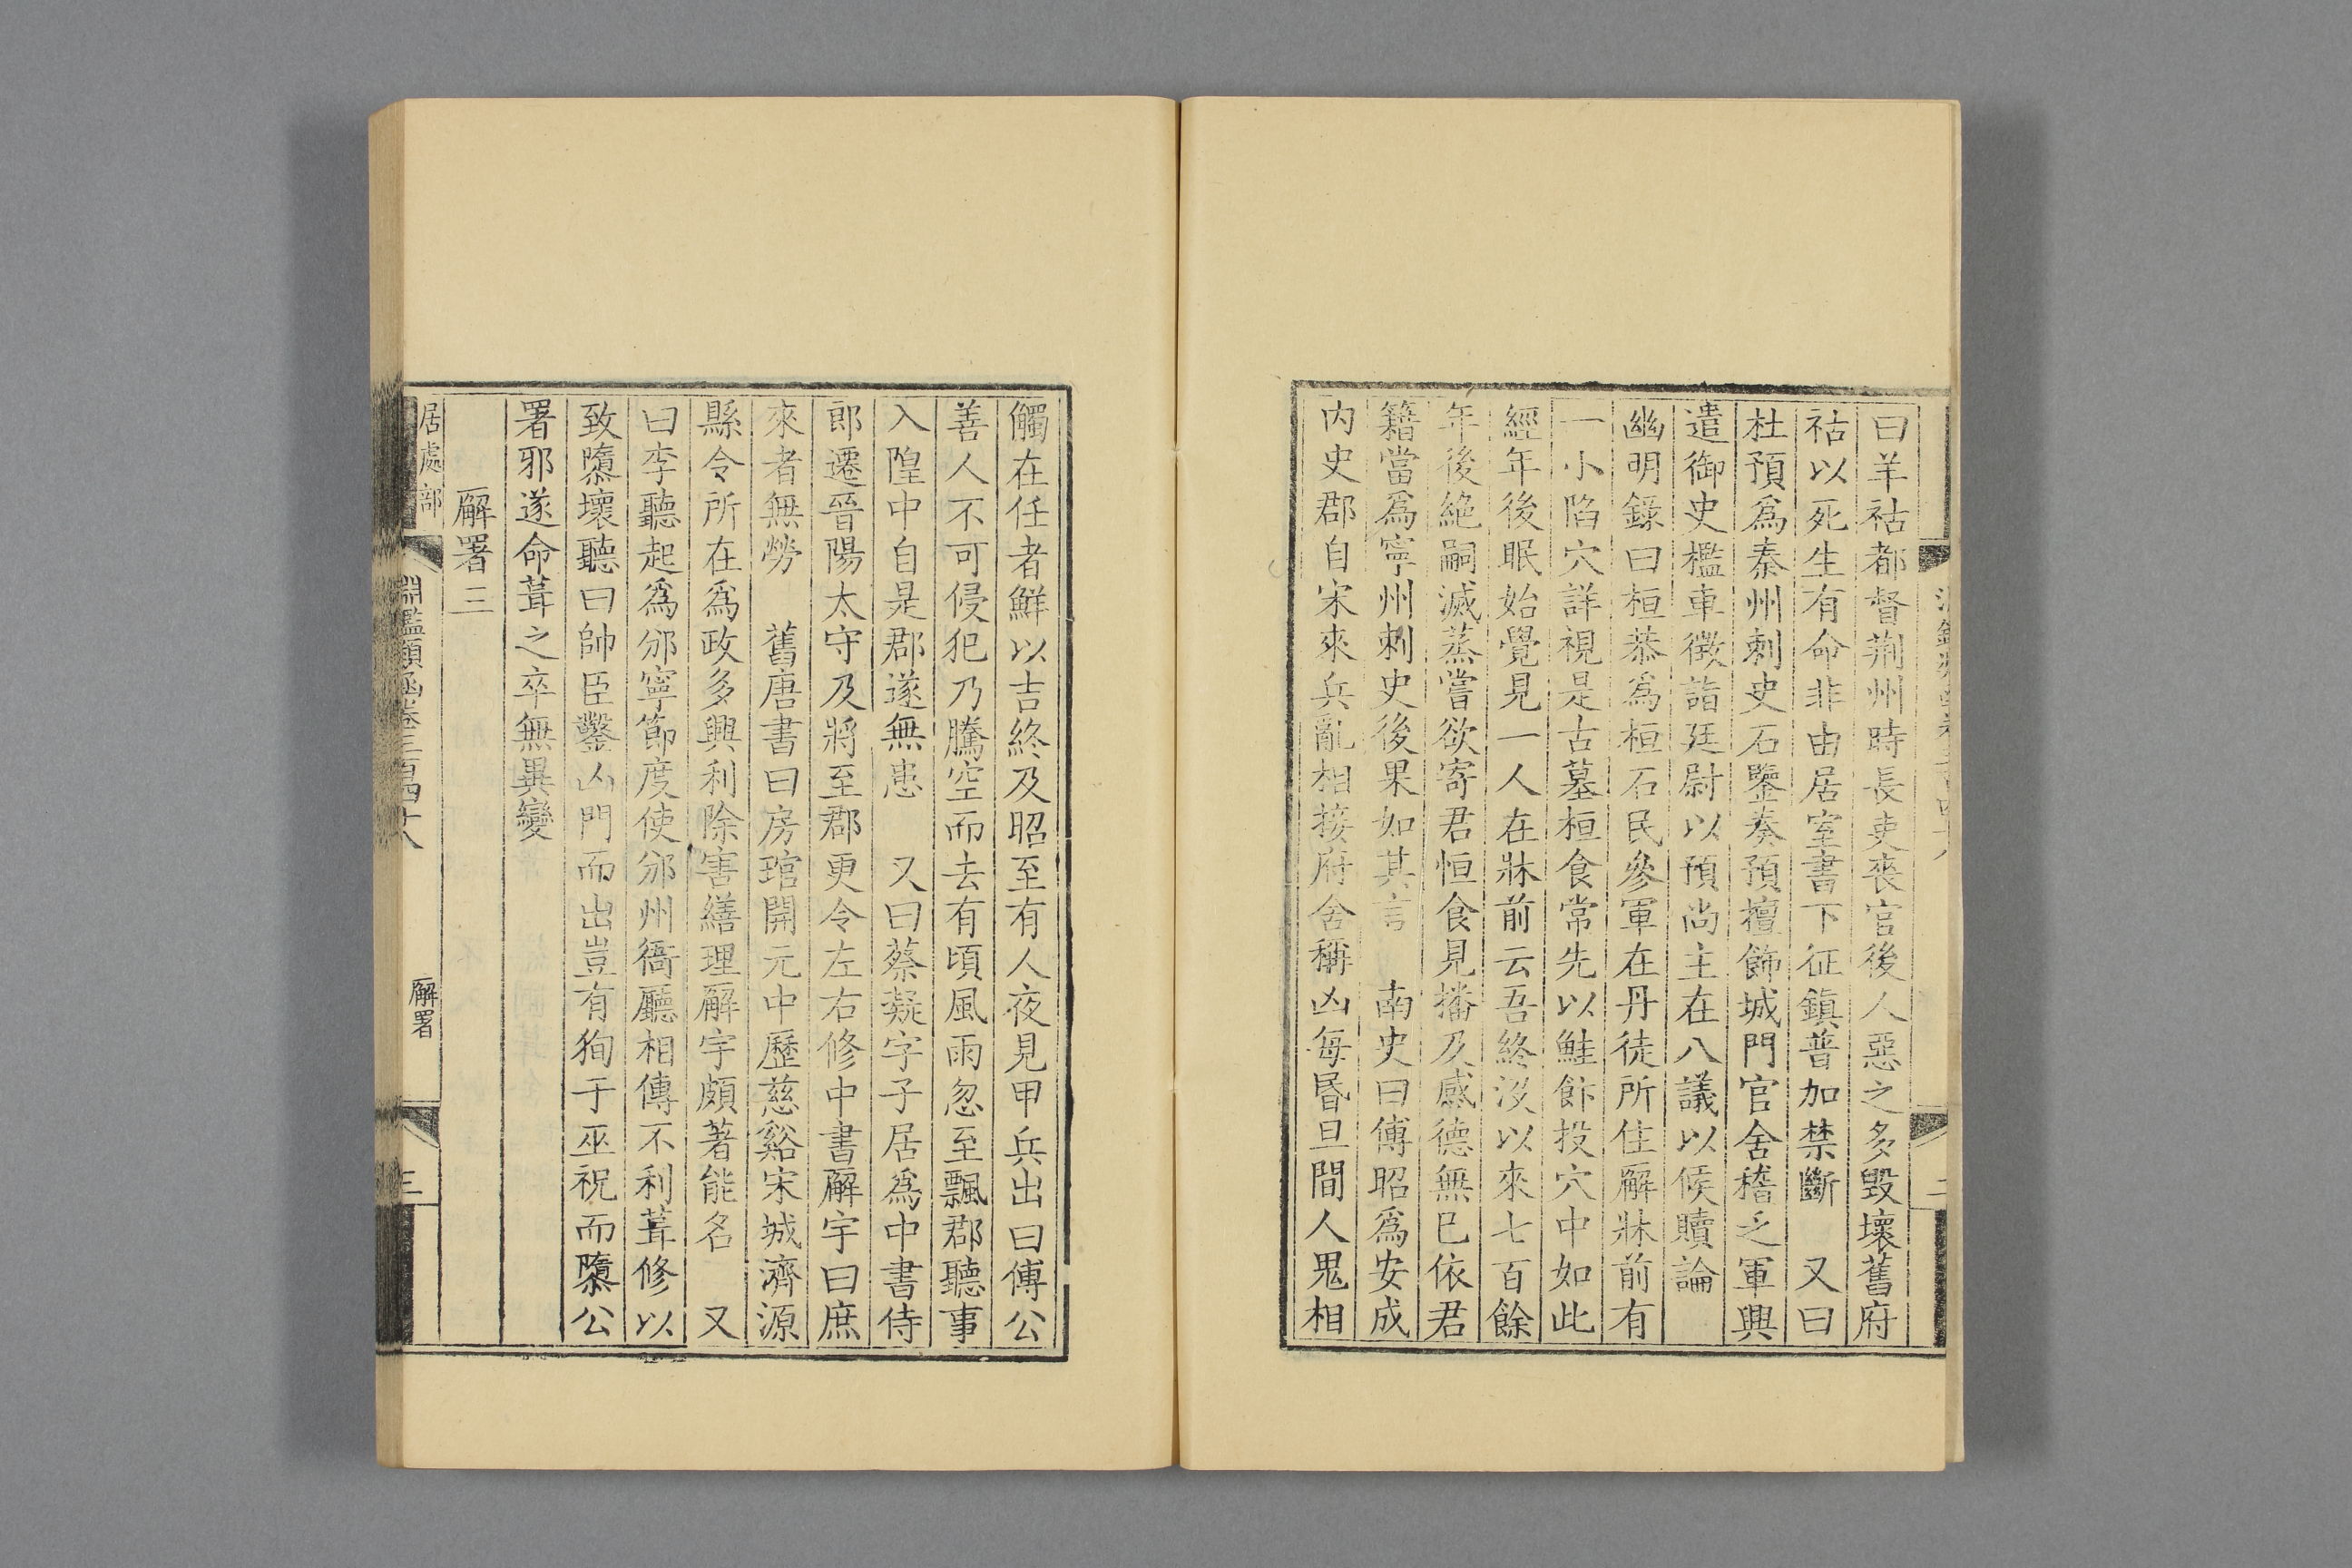 曰羊祜都督荆州時長吏喪官後人惡之多毁壞舊府
祜以死生有命非由居室書下征鎮普加禁斷　又曰
杜預爲秦州刺史石鑒奏預擅飾城門官舍稽乏軍興
遣御史檻車徵詣廷尉以預尚主在八議以候贖論
幽明録曰桓恭爲桓石民參軍在丹徒所住廨牀前有
一小陷穴詳視是古墓桓食常先以鮭飰投穴中如此
經年後眠始覺見一人在牀前云吾終沒以來七百餘
年後絶嗣滅蒸嘗欲寄君恒食見播及感德無已依君
籍當爲寧州刺史後果如其言　南史曰傅昭爲安成
内史郡自宋來兵亂相接府舍稱凶每昬旦間人鬼相
觸在任者鮮以吉終及昭至有人夜見甲兵出曰傅公
善人不可侵犯乃騰空而去有頃風雨忽至飄郡聽事
入隍中自是郡遂無患　又曰蔡凝字子居爲中書侍
郎遷晉陽太守及將至郡更令左右修中書廨宇曰庶
來者無勞　舊唐書曰房琯開元中歷慈谿宋城濟源
縣令所在爲政多興利除害繕理廨宇頗著能名　又
曰李聽起爲邠寧節度使邠州衙廳相傳不利葺修以
致隳壞聽曰帥臣鑿凶門而出豈有狥于巫祝而隳公
署邪遂命葺之卒無異變
廨署三
居處部
淵鑑類函卷三百四十八
廨署
三